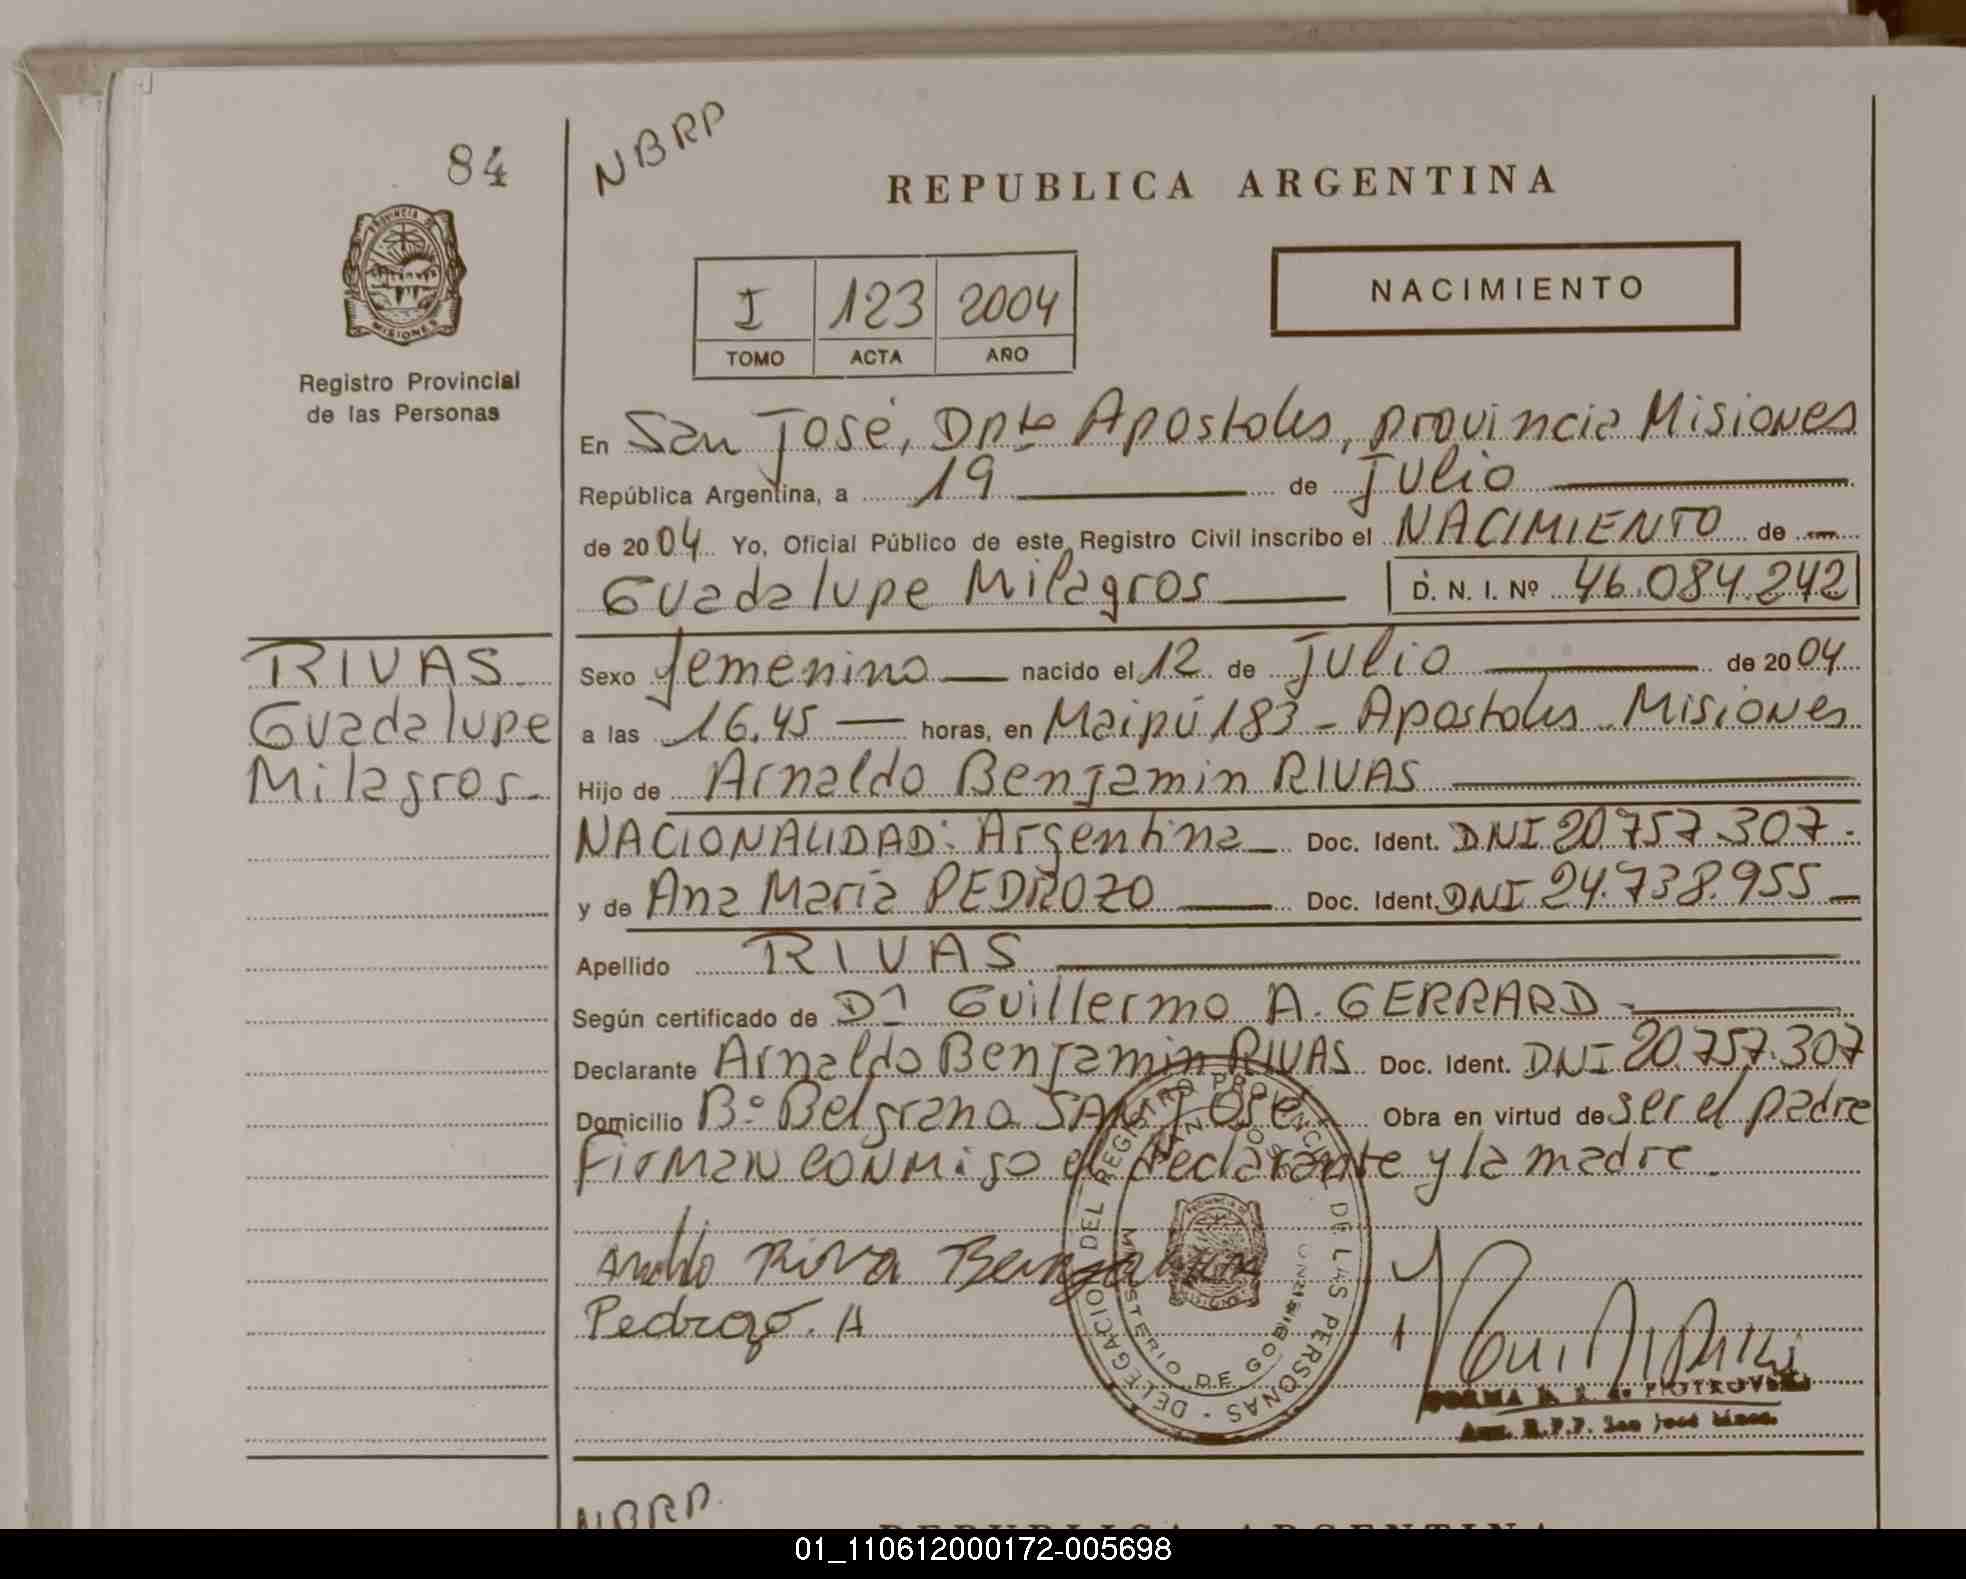 84
NBRP
REPUBLICA ARGENTINA
PROVINCIA DE
MISIONES
Registro Provincial
de las Personas
NACIMIENTO
I 123 2004
TOMO ACTA AÑO
En San José, Dpto Apostoles, provincia Misiones
República Argentina, a 19 de Julio
de 2004 Yo, Oficial Público de este Registro Civil inscribo el NACIMIENTO de
Guadalupe Milagros D. N. I. Nº 46.084.242
RIVAS
Guadalupe
Milagros
Sexo femenino nacido el 12 de Julio de 2004
a las 16.45 horas, en Maipú 183 - Apostoles - Misiones
Hijo de Arnaldo Benjamin RIVAS
NACIONALIDAD: Argentina Doc. Ident. DNI 20.757.307
y de Ana María PEDROZO Doc. Ident. DNI 24.738.955
Apellido RIVAS
Según certificado de Dr Guillermo A. GERRARD
Declarante Arnaldo Benjamin RIVAS Doc. Ident. DNI 20.757.307
Domicilio Bº Belgrano SAN José Obra en virtud de ser el padre
Firman conmigo el declarante y la madre.
Riva Benjamin
Pedrozo. A
DELEGACION DEL REGISTRO PROVINCIAL DE LAS PERSONAS
SAN JOSE
MINISTERIO DE GOBIERNO
NORMA PIOTROVSKI
R.P.P. San José Mnes.
NBRP
REPUBLICA ARGENTINA
01_110612000172-005698